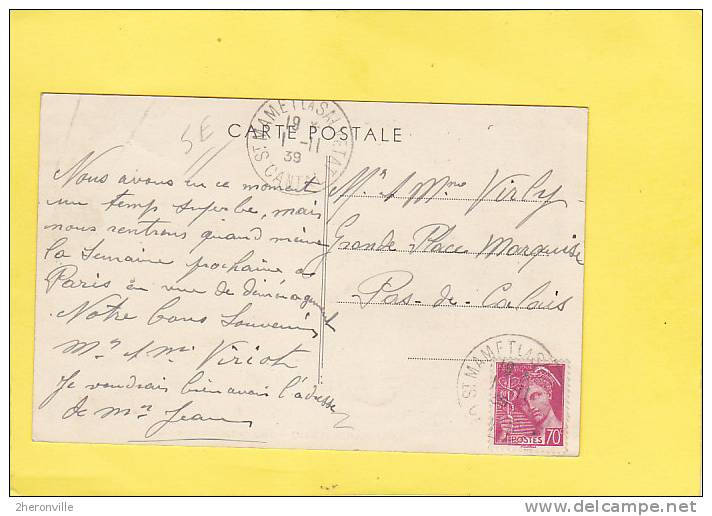 5E
CARTE POSTALE
ST MAMET LA SALVETAT
19
1-11
39
CANTAL
Nous avons en ce moment
un temps superbe, mais
nous rentrons quand même
la semaine prochaine à
Paris en vue de déménagement
Notre bons souvenirs
Mr & Me Viriot
Je voudrais bien avoir l'adresse
de Mr Jean
Mr & Mme Virly
Grande Place Marquise
Pas-de-Calais
ST MAMET LA
19
POSTES 70c
2heronville
www.delcampe.net